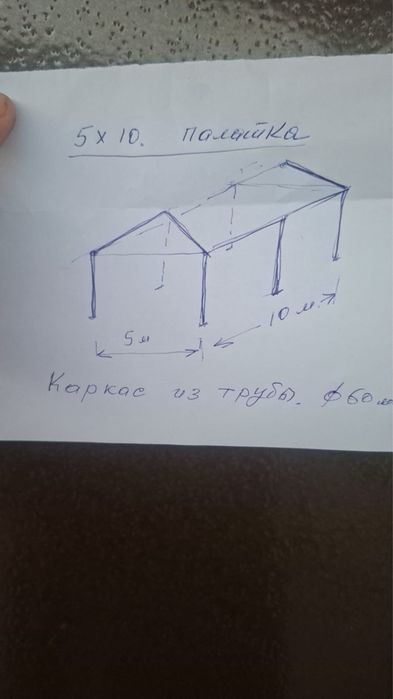 5 х 10. палатка
5 м
10 м.
Каркас из трубы. ϕ60 м